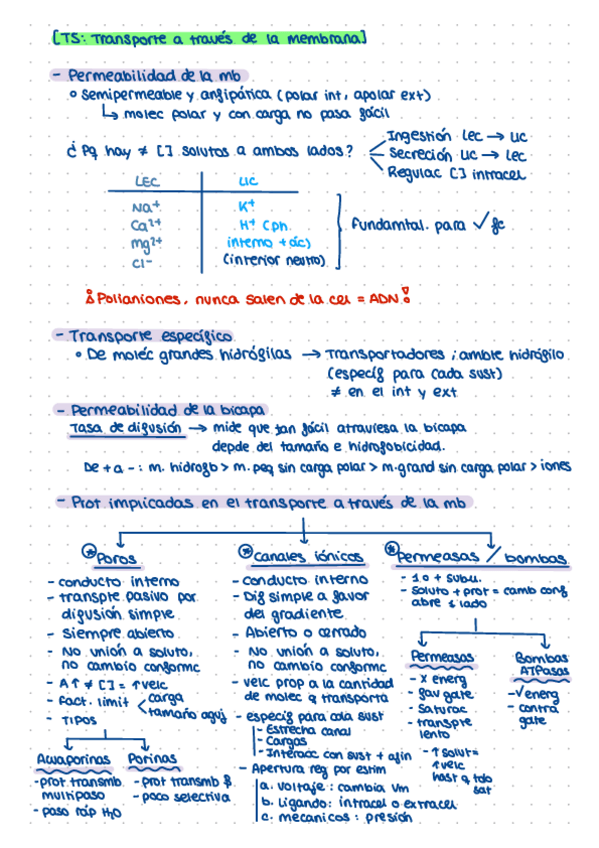 [TS: Transporte a través de la membrana]
- Permeabilidad de la mb
Semipermeable y anfipática (polar int, apolar ext)
↳ molec polar y con carga no pasa fácil
¿Pq hay ≠ [] solutos a ambos lados?
Ingestión LEC → LIC
Secreción LIC → LEC
Regulac [] intracel
LEC LIC
Na+ K+
Ca2+ H+ (ph
mg2+ interno + ác)
Cl- (interior neutro)
Fundamtal. para ✓ fc
¡Polianiones, nunca salen de la cel = ADN!
- Transporte específico
De moléc grandes hidrófilas → Transportadores; ambte hidrófilo
(específ para cada sust)
≠ en el int y ext
- Permeabilidad de la bicapa
Tasa de difusión → mide que tan fácil atraviesa la bicapa
depde del tamaño e hidrofobicidad.
De + a -: m. hidrofb > m. peq sin carga polar > m.grand sin carga polar > iones
- Prot implicadas en el transporte a través de la mb
* Poros
- conducto interno
- transpte pasivo por
difusión simple
- Siempre abierto
- No unión a soluto,
no cambio conformc
- A ↑ ≠ [] = ↑ velc
- fact. limit < carga
tamaño aguj
- TIPOS
Acuaporinas
- prot transmb
multipaso
- paso ráp H2O
Porinas
- prot transmb β
- poco selectiva
* Canales iónicos
- conducto interno
- Dif simple a favor
del gradiente
- Abierto o cerrado
- No unión a soluto,
no cambio conformc
- velc prop a la cantidad
de molec q transporta
- específ para cada sust
- Estrecha canal
- Cargas
- Interacc con sust + afin
- Apertura reg por estim
a. voltaje: cambia Vm
b. Ligando: intracel o extracel
c. mecanicos: presión
* Permeasas / bombas
- 1 o + subu.
- soluto + prot = camb conf
abre 1 lado
Permeasas
- x energ
- fav gdte
- saturac
- transpte
lento
- ↑ solut =
↑ velc
hast q tdo
sat
Bombas
ATPasas
- ✓ energ
- contra
gdte